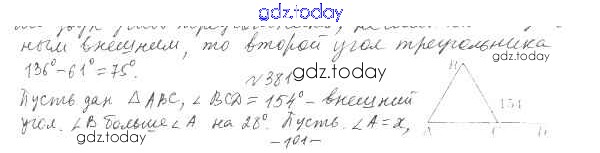 gdz.today
ным внешним, то второй угол треугольника
136°-61°=75°.
gdz.today
№381
Пусть дан △ABC, ∠BCD=154°- внешний
угол. ∠B больше ∠A на 28°. Пусть ∠A=x,
154
A C D
gdz.today
-101-